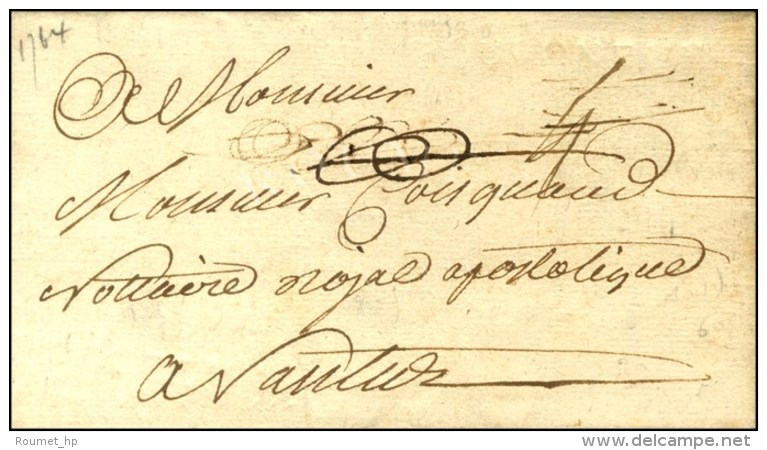 1764
De Monsieur
4
Monsieur Coisquaud
Nottaire roijal apostolique
a Nantes
Roumet_hp
delcampe.net